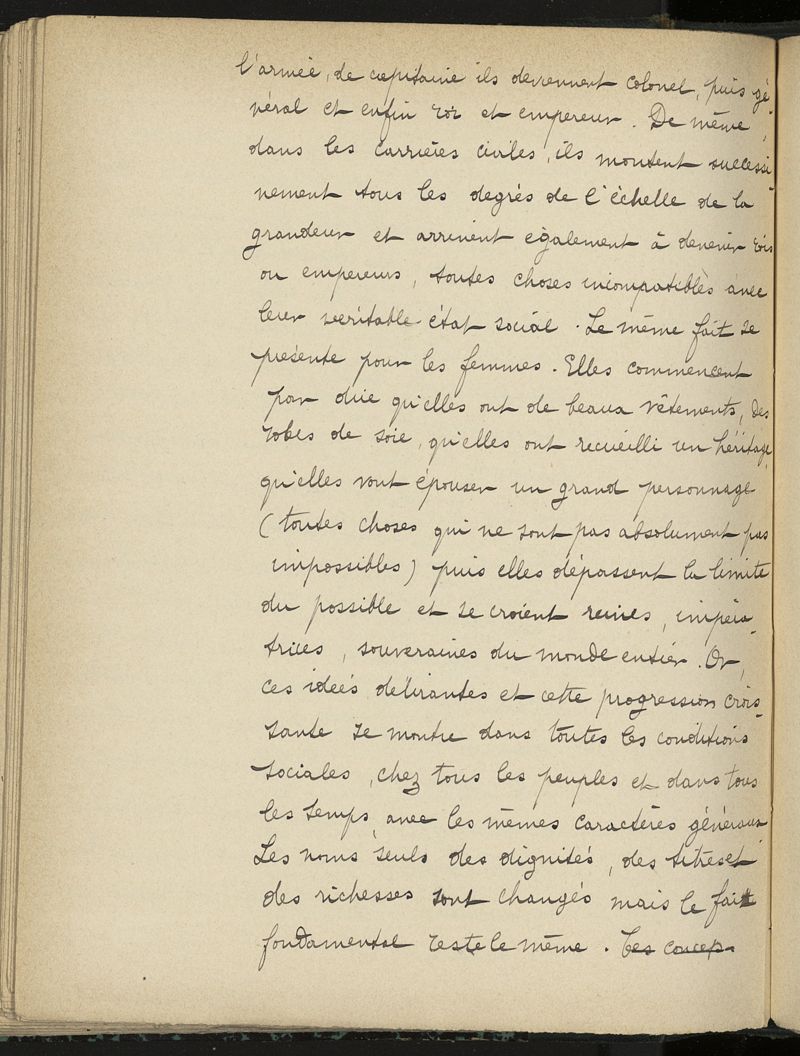 l'armée, de capitaine ils deviennent colonel, puis gé-
néral et enfin roi et empereur. De même,
dans les carrières civiles, ils montent successi-
vement tous les degrés de l'échelle de la
grandeur et arrivent également à devenir rois
ou empereurs, toutes choses incompatibles avec
leur véritable état social. Le même fait se
présente pour les femmes. Elles commencent
par dire qu'elles ont de beaux vêtements, des
robes de soie, qu'elles ont recueilli un héritage,
qu'elles vont épouser un grand personnage
(toutes choses qui ne sont pas absolument pas
impossibles) puis elles dépassent la limite
du possible et se croient reines, impéra-
trices, souveraines du monde entier. Or,
ces idées délirantes et cette progression crois-
sante se montre dans toutes les conditions
sociales, chez tous les peuples et dans tous
les temps avec les mêmes caractères généraux.
Les noms seuls des dignités, des titres et
des richesses sont changés mais le fait
fondamental reste le même. Les concep-